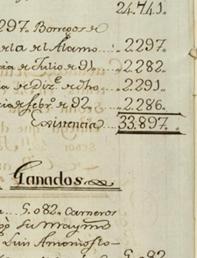 24.741.
297. Borregos de
erla el Alamo... 2297.
cia de Julio de 91. 2282.
cia de Diz.e de dho. 2291.
cia de febr.o de 92. 2.286.
Existencia 33.897.
Ganados.
5.082. Carneros
su Maymo
Luis Antonio
5.082